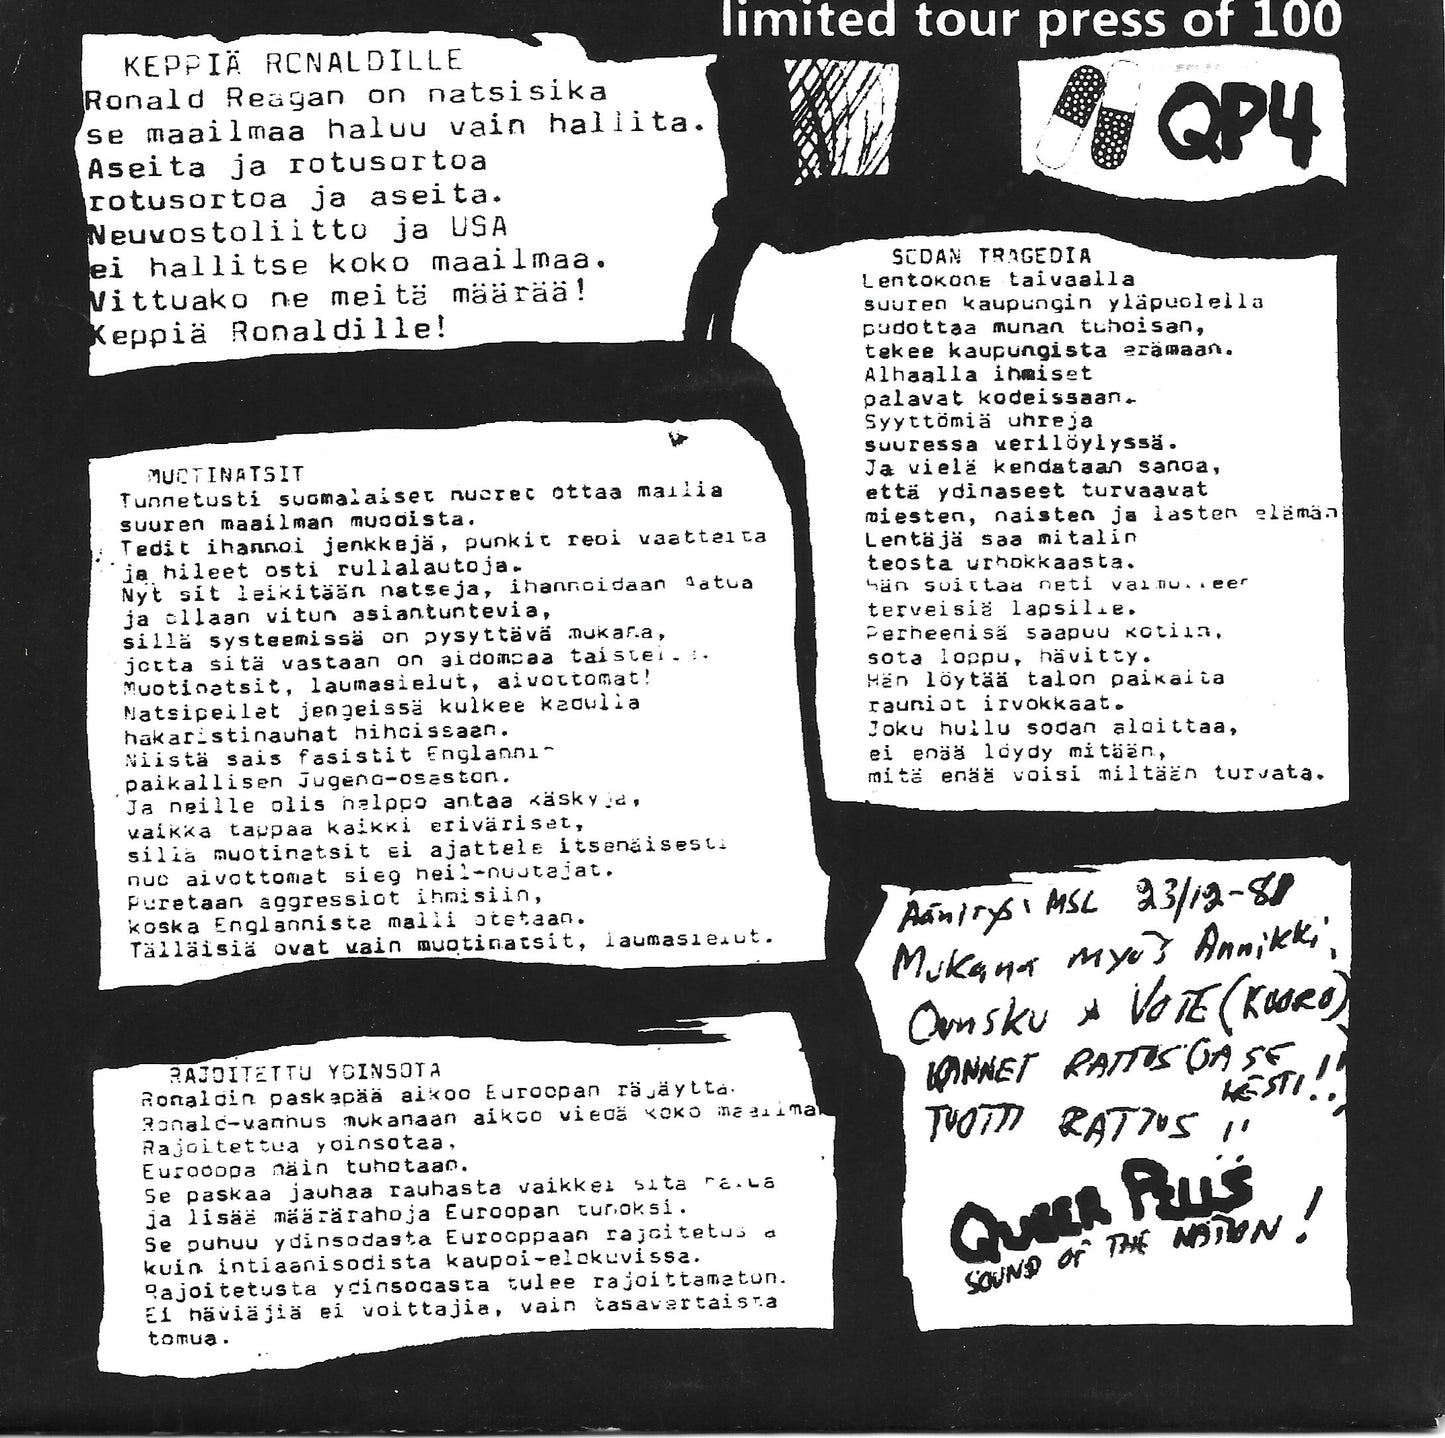 limited tour press of 100
QP4
KEPPIÄ RONALDILLE
Ronald Reagan on natsisika
se maailmaa haluu vain hallita.
Aseita ja rotusortoa
rotusortoa ja aseita.
Neuvostoliitto ja USA
ei hallitse koko maailmaa.
Vittuako ne meitä määrää!
Keppiä Ronaldille!
SODAN TRAGEDIA
Lentokone taivaalla
suuren kaupungin yläpuolella
pudottaa munan tuhoisan,
tekee kaupungista erämaan.
Alhaalla ihmiset
palavat kodeissaan.
Syyttömiä uhreja
suuressa verilöylyssä.
Ja vielä kendataan sanoa,
että ydinaseet turvaavat
miesten, naisten ja lasten elämän
Lentäjä saa mitalin
teosta urhokkaasta.
hän soittaa heti
terveisiä lapsille.
Perheenisä saapuu kotiin,
sota loppu, hävitty.
Hän löytää talon paikalta
rauniot irvokkaat.
Joku hullu sodan aloittaa,
ei enää löydy mitään,
mitä enää voisi miltään turvata.
MUOTINATSIT
Tunnetusti suomalaiset nuoret ottaa mallia
suuren maailman muodista.
Tedit ihannoi jenkkejä, punkit repi vaatteita
ja hileet osti rullalautoja.
Nyt sit leikitään natseja, ihannoidaan Aatua
ja ollaan vitun asiantuntevia,
sillä systeemissä on pysyttävä mukana,
jotta sitä vastaan on aidompaa
Muotinatsit, laumasielut, aivottomat!
Natsipellet jengeissä kulkee kadulla
hakaristinauhat hihoissaan.
Niistä sais fasistit Englannin
paikallisen Jugend-osaston.
Ja neille olis helppo antaa käskyjä,
vaikka tappaa kaikki eriväriset,
sillä muotinatsit ei ajattele itsenäisesti
nuo aivottomat sieg heil-huutajat.
Puretaan aggressiot ihmisiin,
koska Englannista malli otetaan.
Tälläisiä ovat vain muotinatsit, laumasielut.
RAJOITETTU YDINSOTA
Ronaldin paskapää aikoo Euroopan räjäyttä.
Ronald-vanhus mukanaan aikoo viedä koko maailman
Rajoitettua ydinsotaa,
Eurooopa näin tuhotaan.
Se paskaa jauhaa rauhasta vaikkei sitä halua
ja lisää määrärahoja Euroopan tuhoksi.
Se puhuu ydinsodasta Eurooppaan rajoitetusta
kuin intiaanisodista kaupoi-elokuvissa.
Rajoitetusta ydinsodasta tulee rajoittamaton.
Ei häviäjiä ei voittajia, vain tasavertaista
tomua.
Äänitys: MSL 23/12-81
Mukana myös Annikki,
Ounsku & VOTE (KUORO)
KANNET RATTUS (JA SE
KESTI!!)
TUOTTI RATTUS!!
QUEER PILLS
SOUND OF THE NATION!